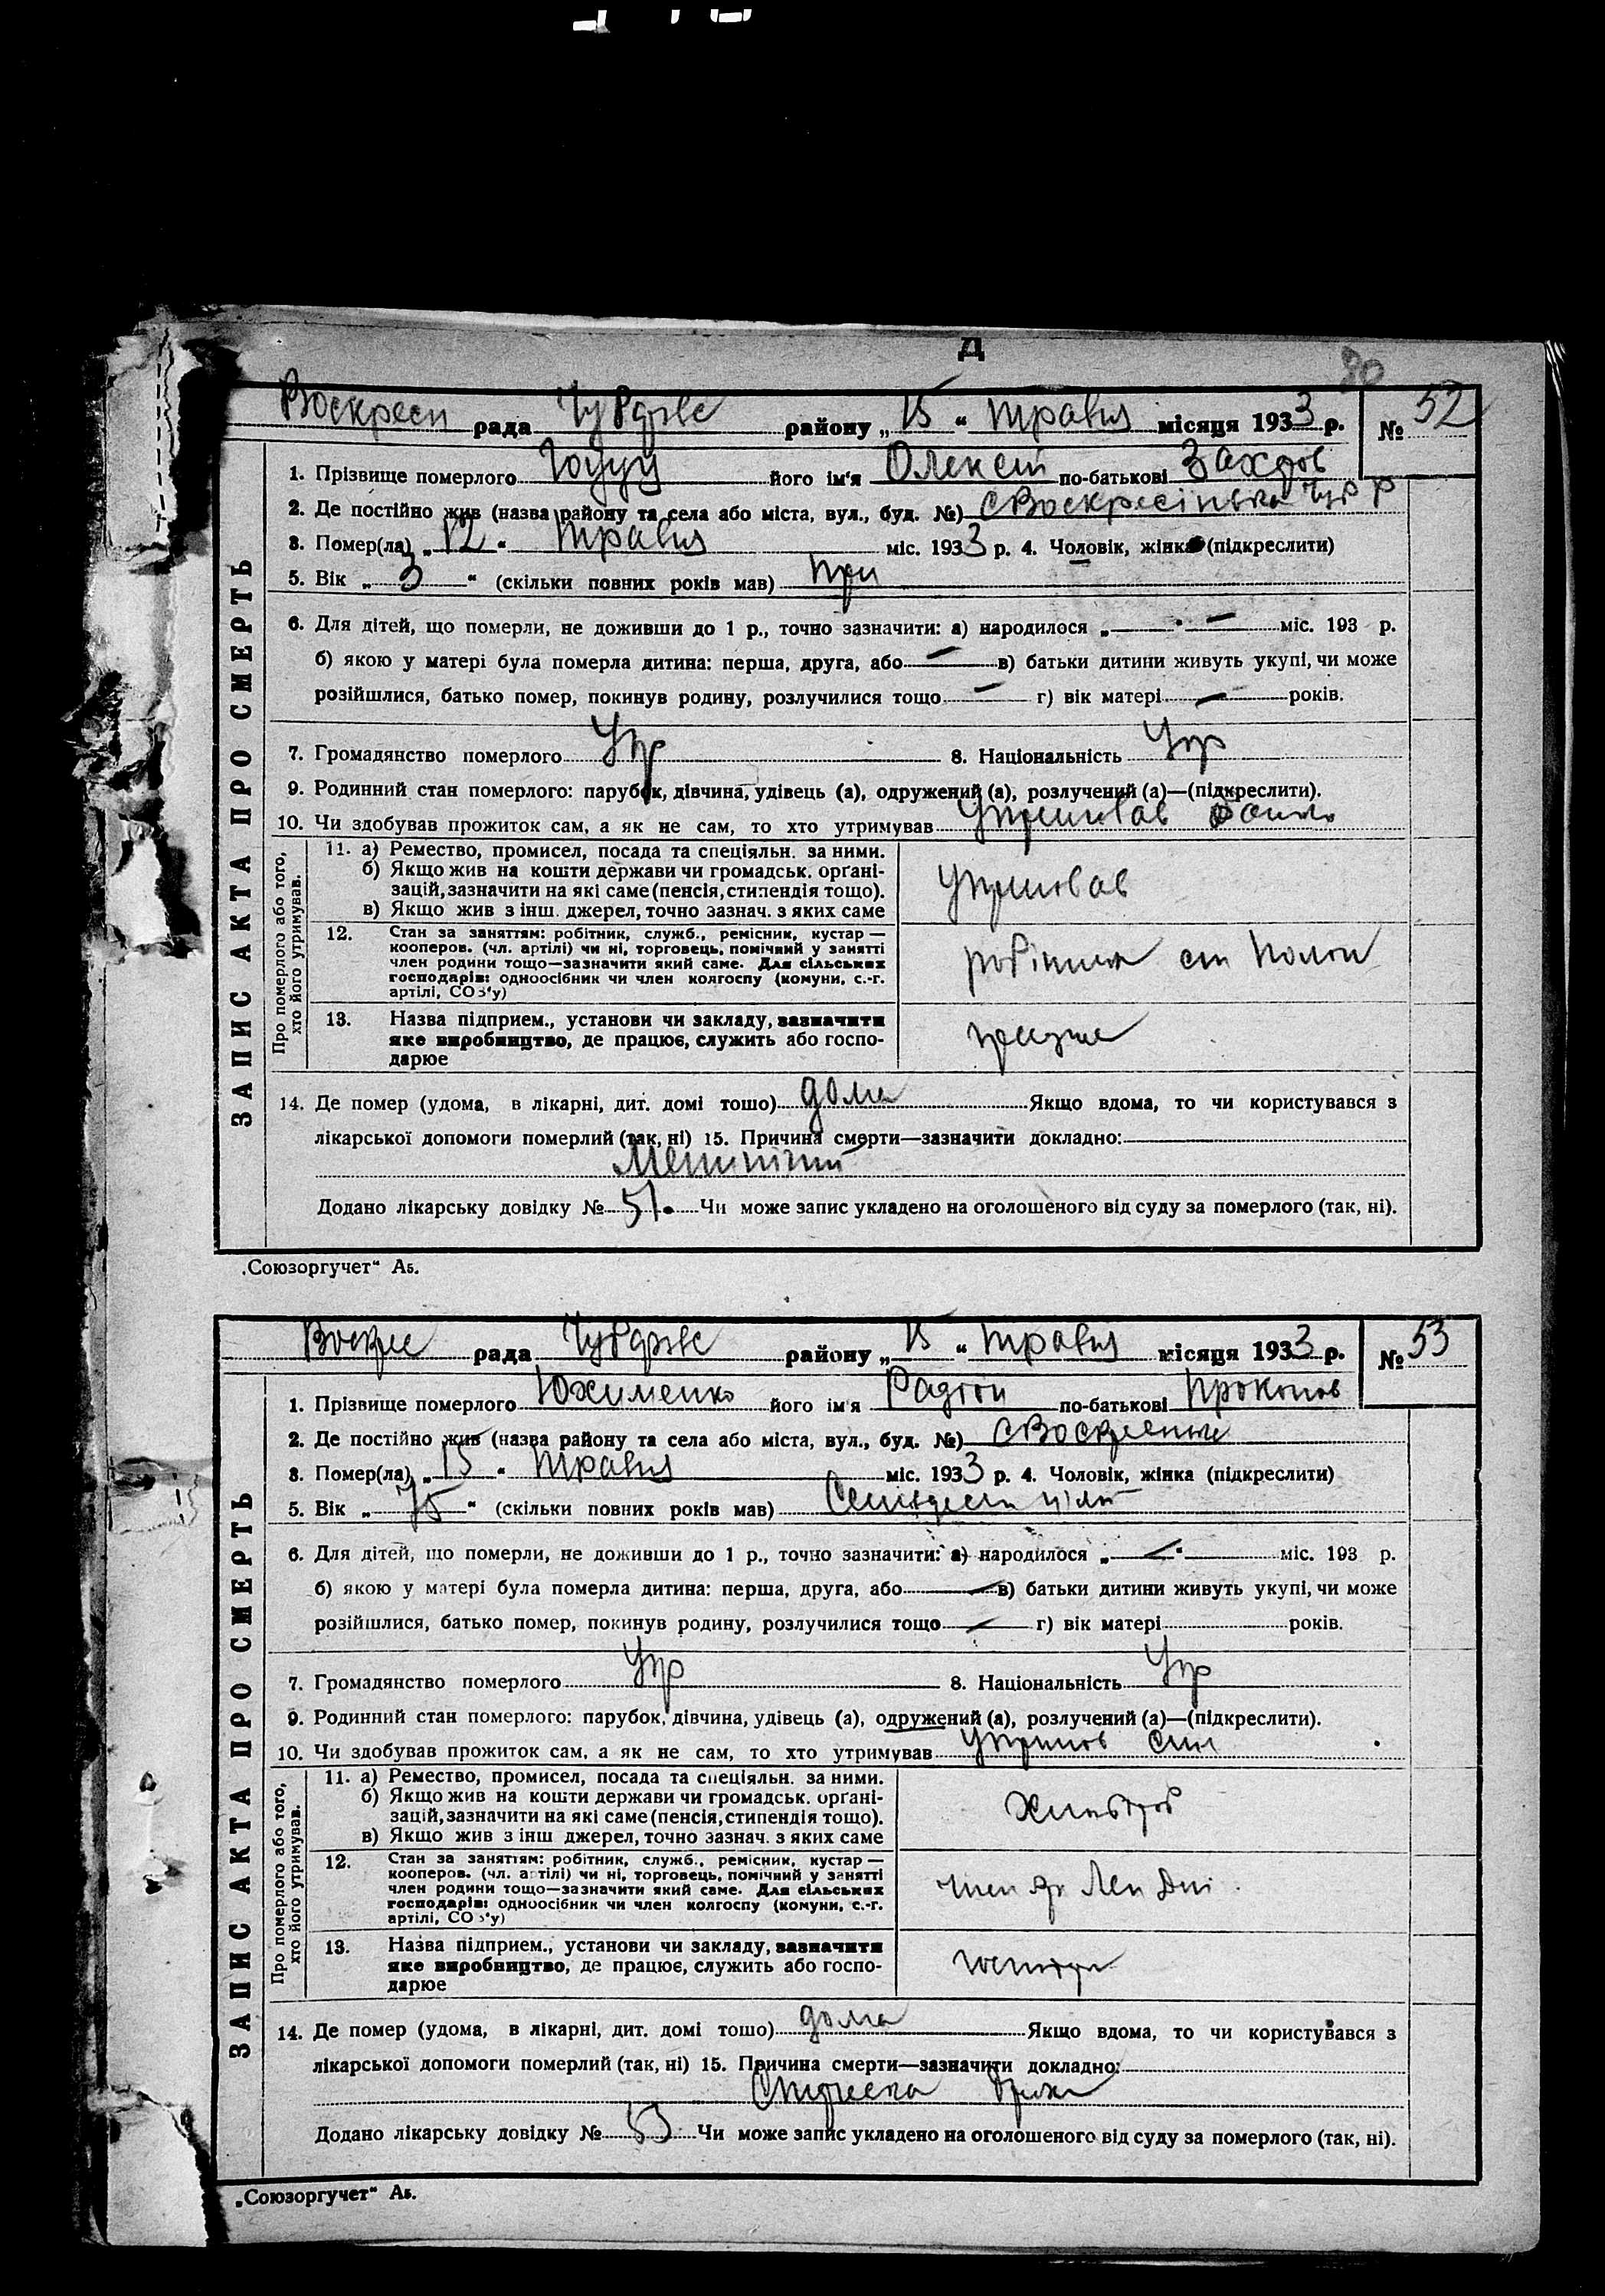 Д
80
Воскресн рада Чубарівс району „15“ травня місяця 1933 р. № 52
1. Прізвище померлого його ім'я Олексій по-батькові Захаров
2. Де постійно жив (назва району та села або міста, вул., буд. №) с Воскресінька Чуб Р
3. Помер(ла) „12“ травня міс. 1933 р. 4. Чоловік, жінка (підкреслити)
5. Вік „3“ (скільки повних років мав) три
6. Для дітей, що померли, не доживши до 1 р., точно зазначити: а) народилося „—“ — міс. 193 р.
б) якою у матері була померла дитина: перша, друга, або — в) батьки дитини живуть укупі, чи може
розійшлися, батько помер, покинув родину, розлучилися тощо — г) вік матері — років.
7. Громадянство померлого Укр 8. Національність Укр
9. Родинний стан померлого: парубок, дівчина, удівець (а), одружений (а), розлучений (а)—(підкреслити).
10. Чи здобував прожиток сам, а як не сам, то хто утримував
Про померлого або того, хто його утримував.
11. а) Ремество, промисел, посада та спеціяльн. за ними.
б) Якщо жив на кошти держави чи громадськ. орґані-
зацій, зазначити на які саме (пенсія, стипендія тощо).
в) Якщо жив з інш. джерел, точно зазнач. з яких саме
12. Стан за заняттям: робітник, служб., ремісник, кустар—
кооперов. (чл. артілі) чи ні, торговець, помічний у занятті
член родини тощо—зазначити який саме. Для сільських
господарів: одноосібник чи член колгоспу (комуни, с.-г.
артілі, СОЗ'у)
робітник ст Пологи
13. Назва підприєм., установи чи закладу, зазначити
яке виробництво, де працює, служить або госпо-
дарює
14. Де помер (удома, в лікарні, дит. домі тошо) дома Якщо вдома, то чи користувався з
лікарської допомоги померлий (так, ні) 15. Причина смерти—зазначити докладно:
Менінгит
Додано лікарську довідку № 51. Чи може запис укладено на оголошеного від суду за померлого (так, ні).
ЗАПИС АКТА ПРО СМЕРТЬ
„Союзоргучет“ Аб.
Воскре рада Чубарівс району „15“ травня місяця 1933 р. № 53
1. Прізвище померлого Юхименко його ім'я Радіон по-батькові Прокопов
2. Де постійно жив (назва району та села або міста, вул., буд. №)
3. Помер(ла) „15“ травня міс. 1933 р. 4. Чоловік, жінка (підкреслити)
5. Вік „75“ (скільки повних років мав)
6. Для дітей, що померли, не доживши до 1 р., точно зазначити: а) народилося „—“ міс. 193 р.
б) якою у матері була померла дитина: перша, друга, або — в) батьки дитини живуть укупі, чи може
розійшлися, батько помер, покинув родину, розлучилися тощо — г) вік матері років.
7. Громадянство померлого Укр 8. Національність Укр
9. Родинний стан померлого: парубок, дівчина, удівець (а), одружений (а), розлучений (а)—(підкреслити).
10. Чи здобував прожиток сам, а як не сам, то хто утримував син
Про померлого або того, хто його утримував.
11. а) Ремество, промисел, посада та спеціяльн. за ними.
б) Якщо жив на кошти держави чи громадськ. орґані-
зацій, зазначити на які саме (пенсія, стипендія тощо).
в) Якщо жив з інш джерел, точно зазнач. з яких саме
Хлибороб
12. Стан за заняттям: робітник, служб., ремісник, кустар—
кооперов. (чл. артілі) чи ні, торговець, помічний у занятті
член родини тощо—зазначити який саме. Для сільських
господарів: одноосібник чи член колгоспу (комуни, с.-г.
артілі, СОЗ'у)
13. Назва підприєм., установи чи закладу, зазначити
яке виробництво, де працює, служить або госпо-
дарює
14. Де помер (удома, в лікарні, дит. домі тошо) дома Якщо вдома, то чи користувався з
лікарської допомоги померлий (так, ні) 15. Причина смерти—зазначити докладно:
Додано лікарську довідку № 53 Чи може запис укладено на оголошеного від суду за померлого (так, ні).
ЗАПИС АКТА ПРО СМЕРТЬ
„Союзоргучет“ Аб.